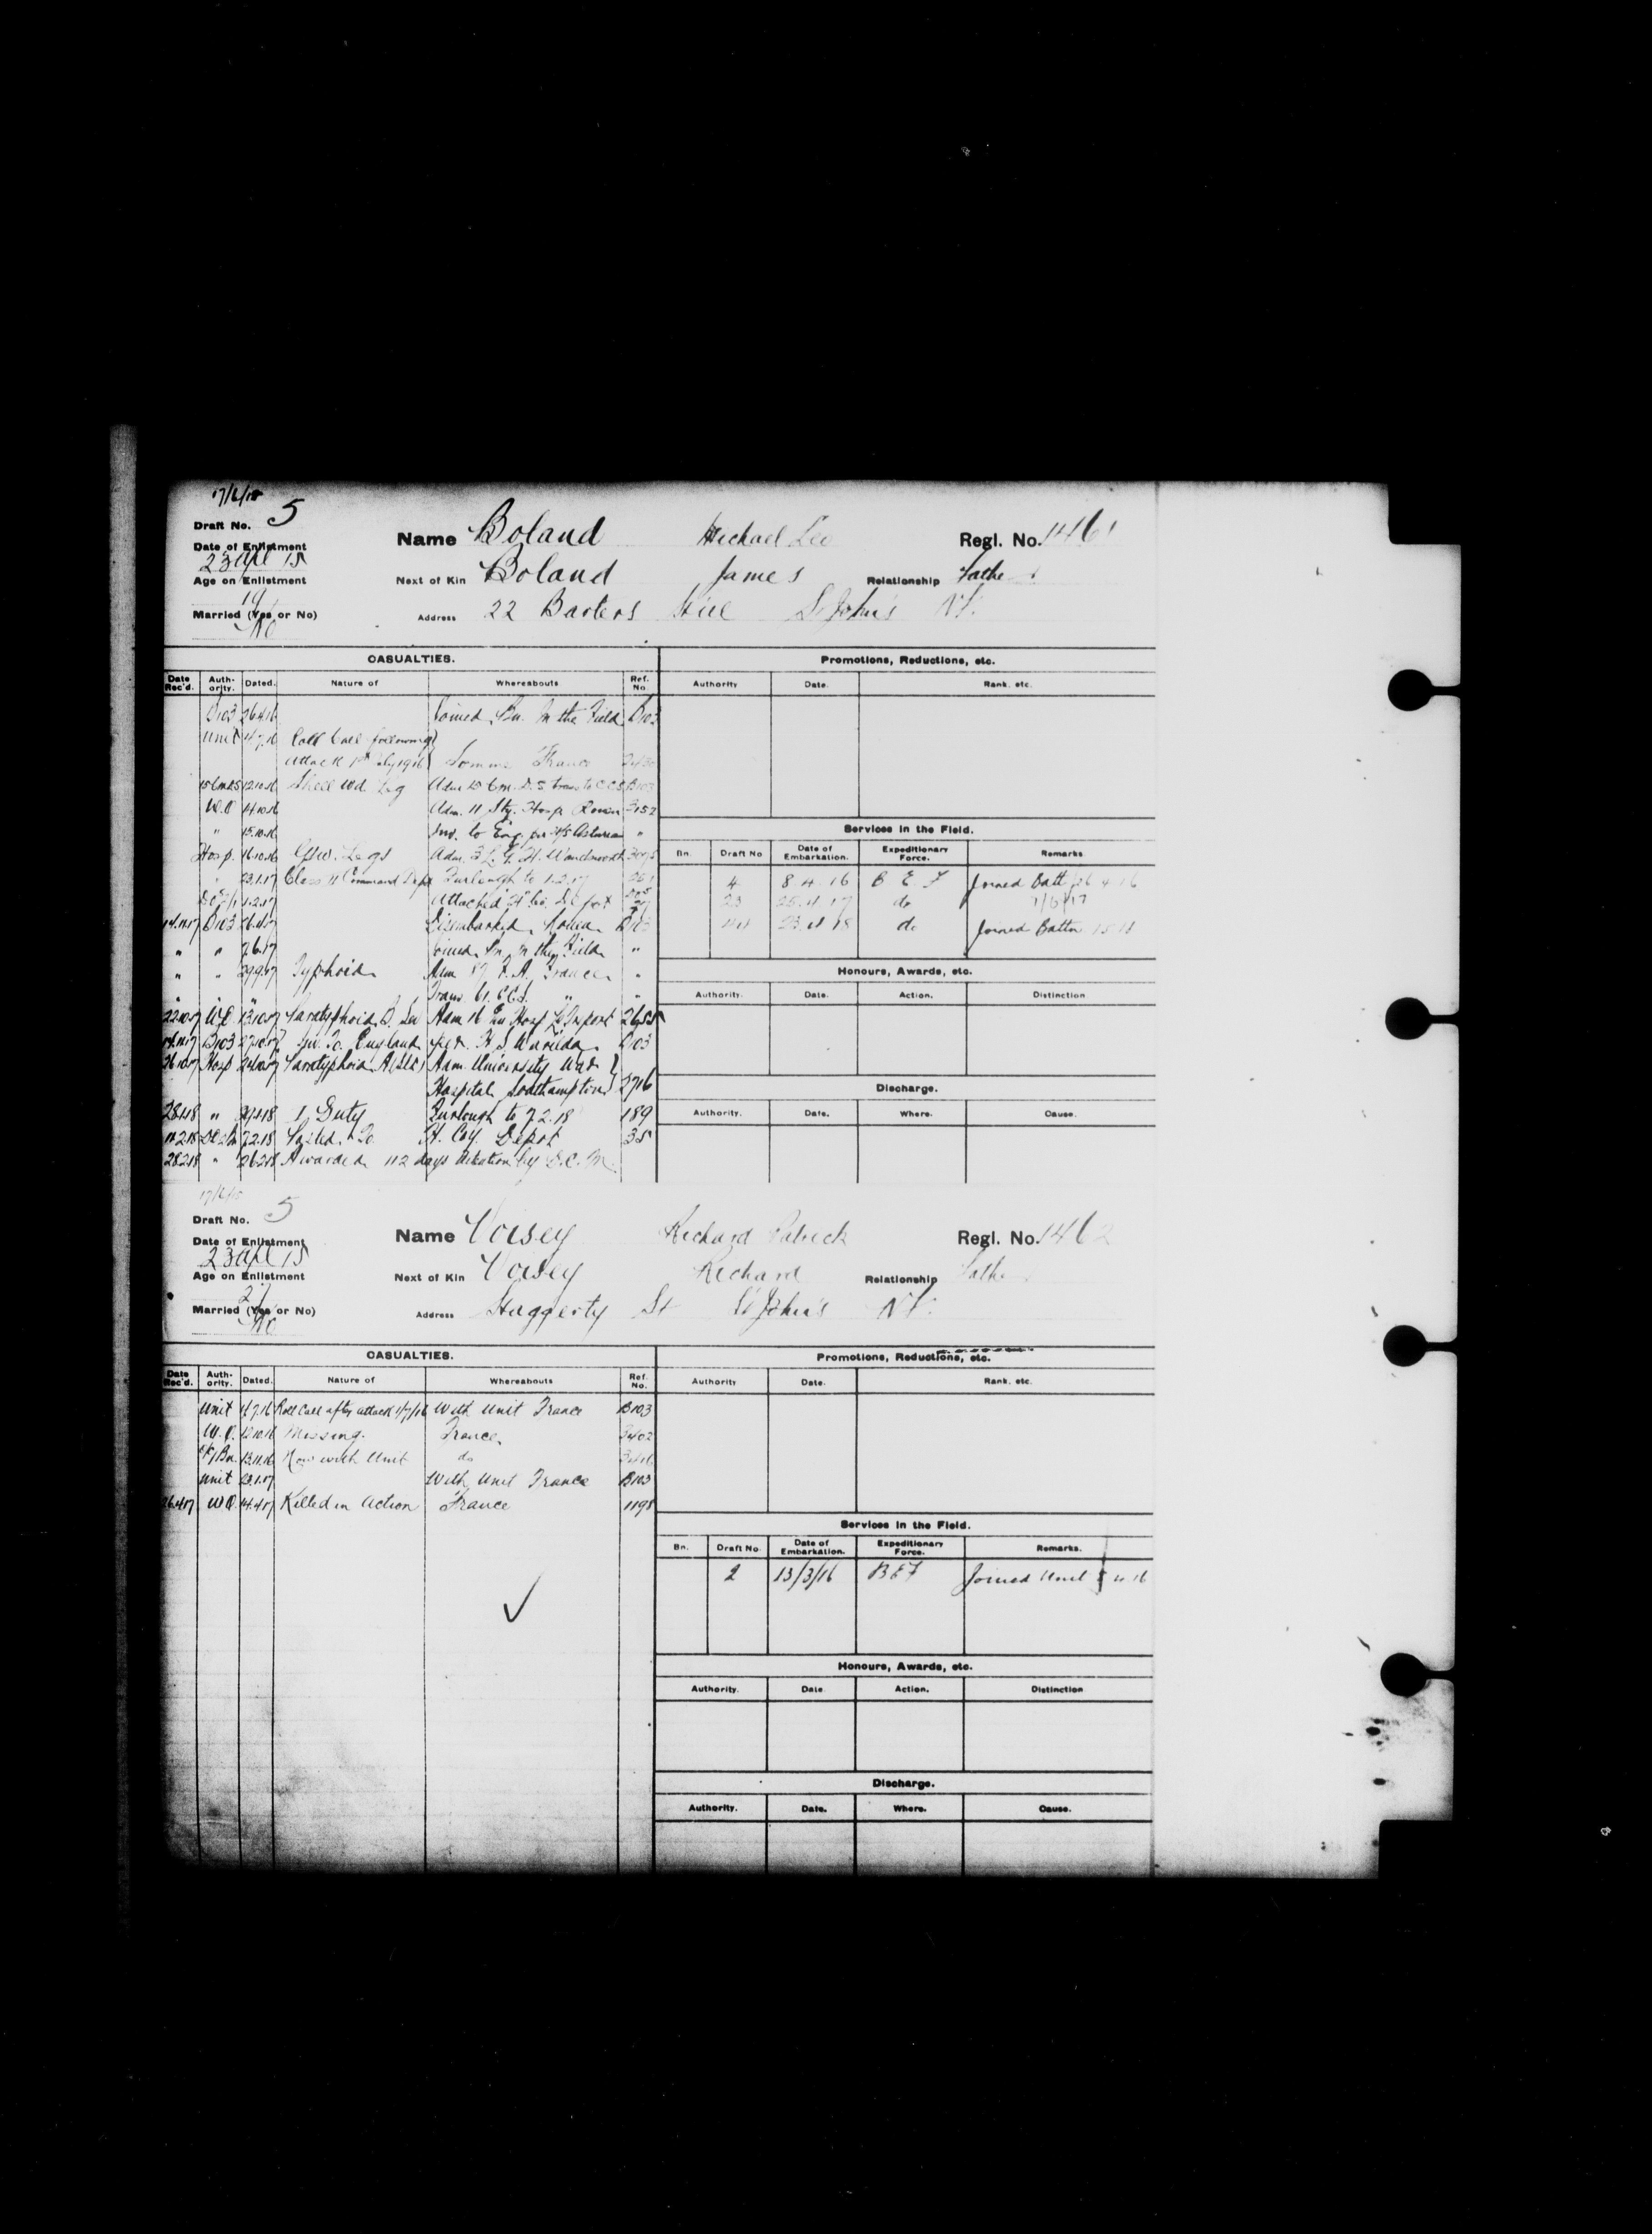 17/6/15
Draft No. 5
Name Boland Michael Leo Regl. No. 1461
Date of Enlistment
23 Apl 15
Age on Enlistment
19
Next of Kin Boland James Relationship Father
Married (Yes or No)
No
Address 22 Barters Hill St John's Nf.
CASUALTIES. Promotions, Reductions, etc.
Date Rec'd. Auth-ority. Dated. Nature of Whereabouts Ref. No. Authority Date. Rank. etc.
B103 26.4.16 Joined Bn. In the Field B103
Unit Roll Call following
attack 1st July 1916 Somme France
12.10.16 Shell wd Leg B103
W.O 14.10.16 Adm. 11 Sty. Hosp Rouen 3152
" 15.10.16 Inv. to Eng. per H/S Asturias "
Services in the Field.
Hosp. 16.10.16 G.S.W. Legs Adm. 3 L. G. H. Wandsworth
Bn. Draft No Date of Embarkation. Expeditionary Force. Remarks
" 23.1.17 Class II Command Depot Furlough to 1.2.17
4 8 4. 16 B E F Joined Batt 26 4 16
1.2.17 Attached H Co. Depot
23 25.4.17 do 7/6/17
14.11.17 B103 26.4.17 Disembarked Rouen B103
23.4.18 do Joined Battn
" " 7.6.17 Joined Bn. In the Field "
" " 29.9.17 Typhoid Adm 87 F. A. France "
Honours, Awards, etc.
Trans. 61. CCS. " "
Authority. Date. Action. Distinction
22.10.17 W.O. 13.10.17 Paratyphoid B. Sev Adm 16 Gen Hosp Le Treport 2655
14.11.17 B103 27.10.17 Inv. To England per H.S Warilda B103
26.10.17 Hosp 24.10.17 Paratyphoid A (Sev) Adm. University War
Hospital, Southampton 2716
Discharge.
28.1.18 " Duty Furlough to 7.2.18 189
Authority. Date. Where. Cause.
7.2.18 Posted To H. Coy. Depot 35
28.2.18 " 26.2.18 Awarded 112 days detention by D.C.M.
17/6/15
Draft No. 5
Name Voisey Richard Patrick Regl. No. 1462
Date of Enlistment
23 Apl 15
Age on Enlistment
21
Next of Kin Voisey Richard Relationship Father
Married (Yes or No)
No
Address Haggerty St St John's Nf.
CASUALTIES. Promotions, Reductions, etc.
Date Rec'd. Auth-ority. Dated. Nature of Whereabouts Ref. No. Authority Date. Rank. etc.
Unit Roll Call after attack 1/7/16 With Unit France B103
W.O. 12.10.16 Missing. France.
13.11.16 Now with Unit do
Unit 23.1.17 With Unit France B103
26.4.17 W.O. 14.4.17 Killed in Action France 1198
Services in the Field.
Bn. Draft No. Date of Embarkation. Expeditionary Force. Remarks.
2 13/3/16 BEF Joined Unit
Honours, Awards, etc.
Authority. Date. Action. Distinction
Discharge.
Authority. Date. Where. Cause.